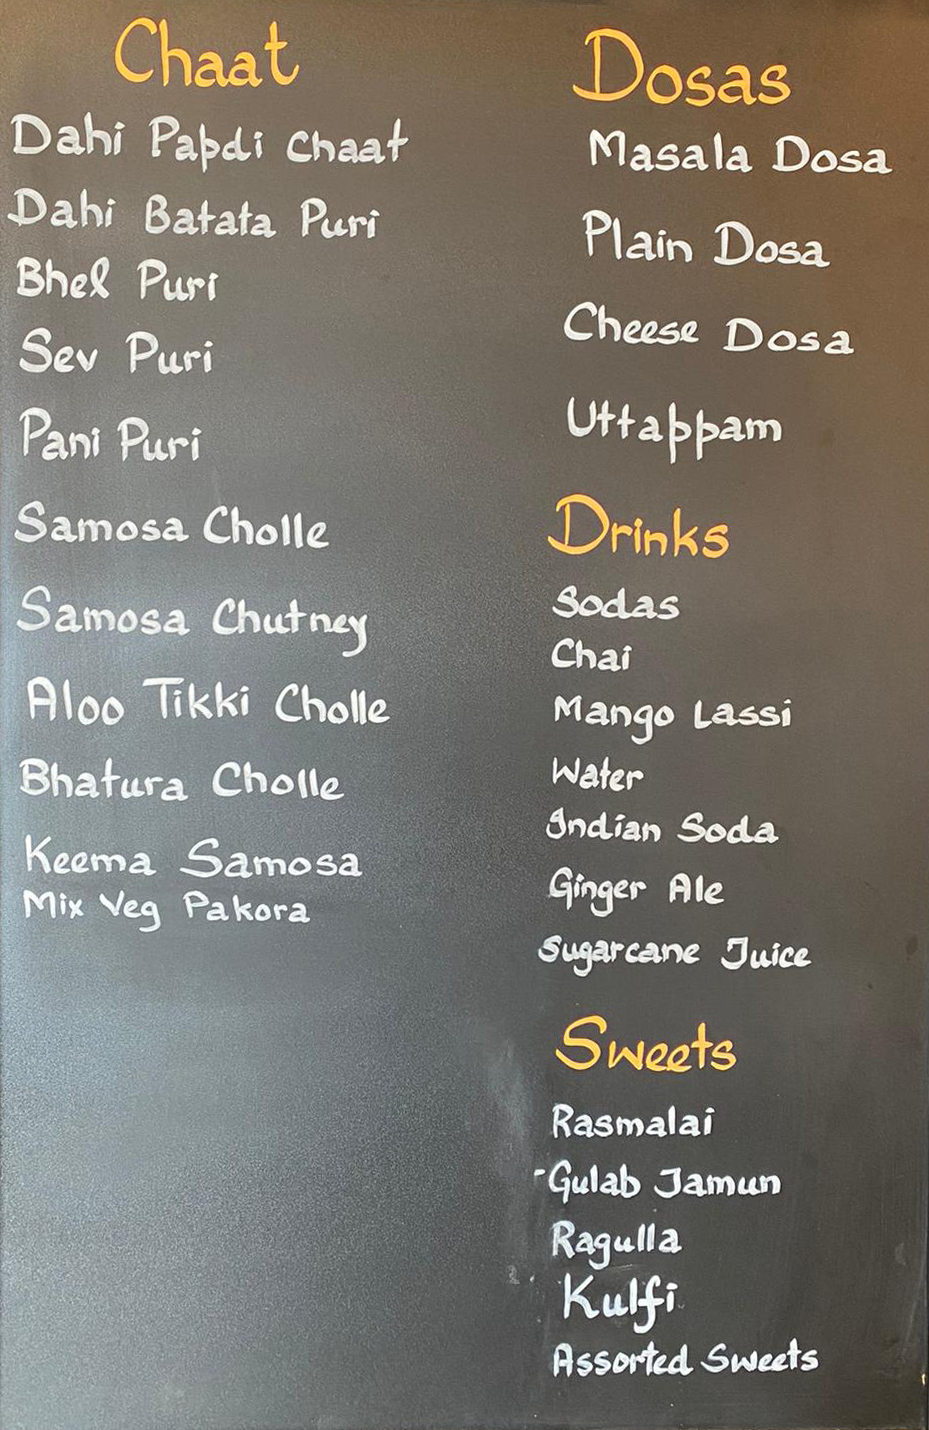 Chaat
Dahi Papdi Chaat
Dahi Batata Puri
Bhel Puri
Sev Puri
Pani Puri
Samosa Cholle
Samosa Chutney
Aloo Tikki Cholle
Bhatura Cholle
Keema Samosa
Mix Veg Pakora
Dosas
Masala Dosa
Plain Dosa
Cheese Dosa
Uttappam
Drinks
Sodas
Chai
Mango Lassi
Water
Indian Soda
Ginger Ale
Sugarcane Juice
Sweets
Rasmalai
-Gulab Jamun
Ragulla
Kulfi
Assorted Sweets